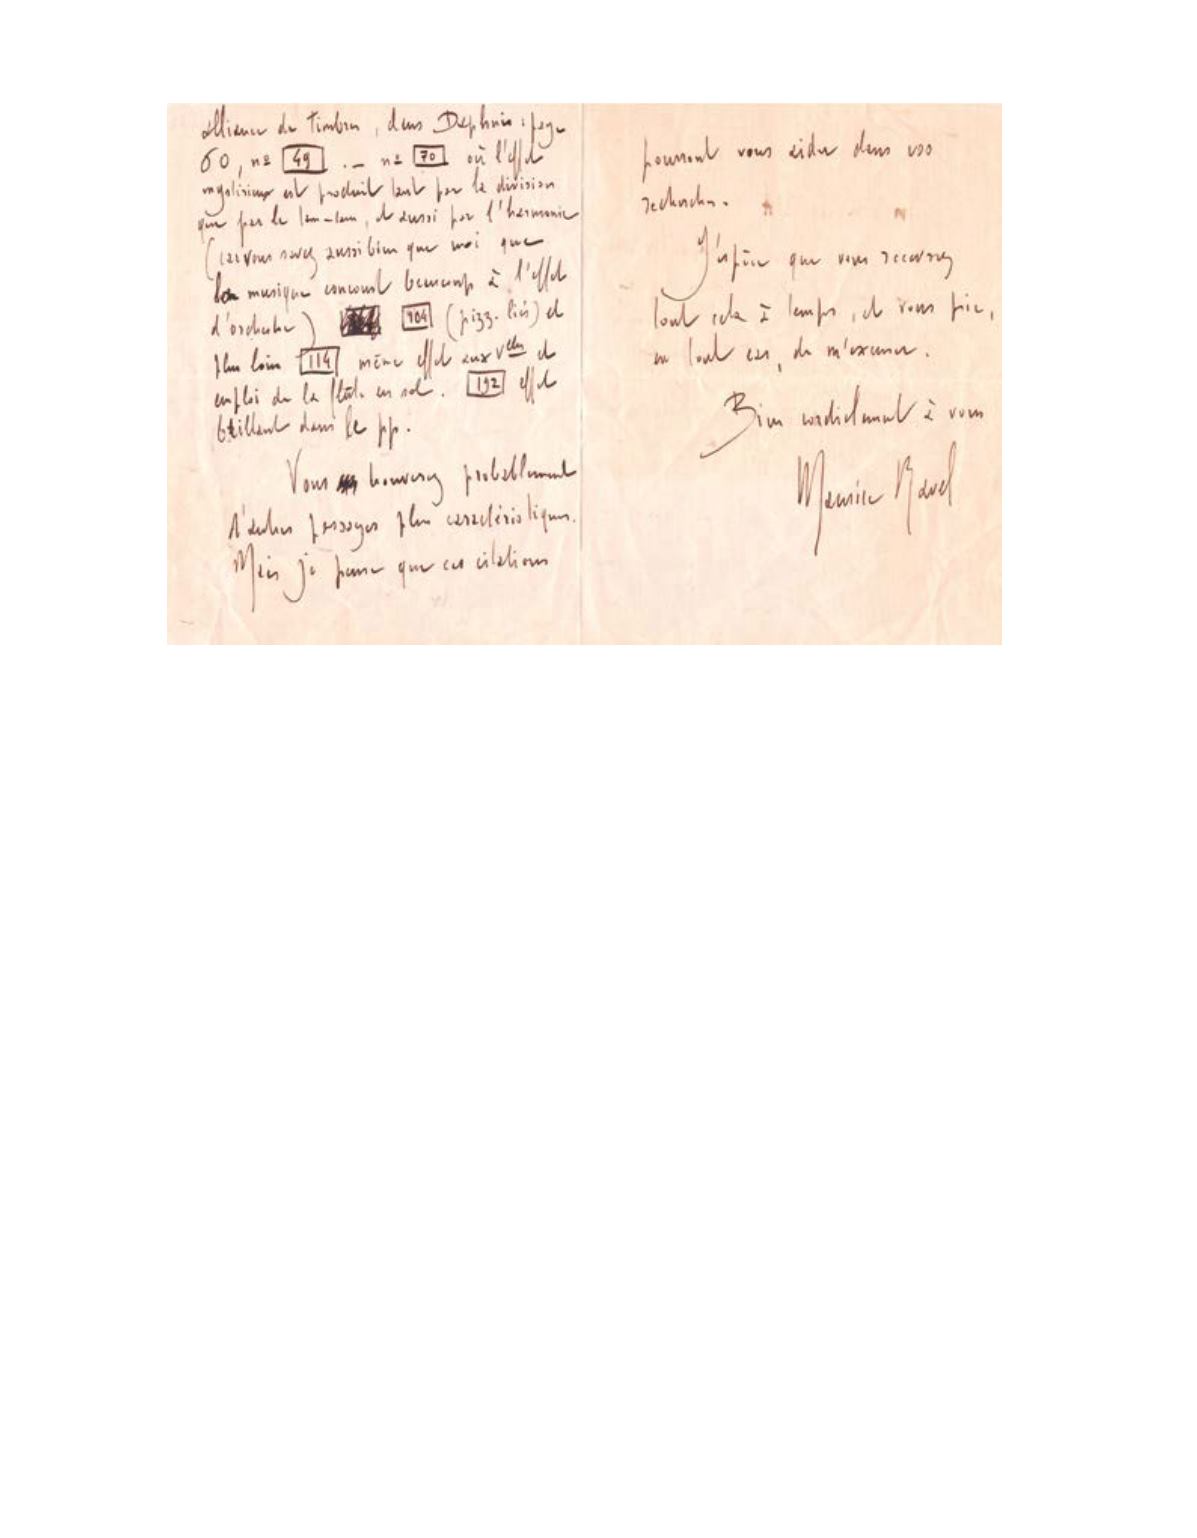 alliance de timbres, dans Daphnis : page
60, nº 49 . — nº 70 où l'effet
mystérieux est produit tant par la division
que par le tam-tam, et aussi par l'harmonie
(car vous savez aussi bien que moi que
la musique concourt beaucoup à l'effet
d'orchestre) 104 (pizz. liés) et
plus loin 114 même effet aux vcelles et
emploi de la flûte en sol. 192 effet
brillant dans le pp.
Vous trouverez probablement
d'autres passages plus caractéristiques.
Mais je pense que ces citations
pourront vous aider dans vos
recherches.
J'espère que vous recevrez
tout cela à temps, et vous prie,
en tout cas, de m'excuser.
Bien cordialement à vous
Maurice Ravel